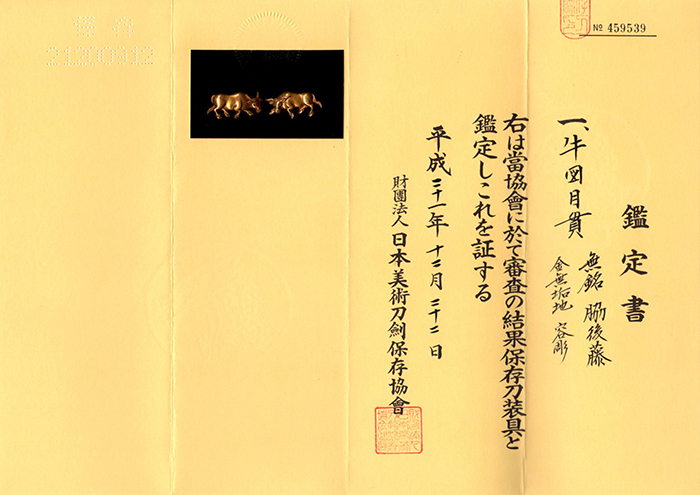 № 459539
鑑定書
一、牛図目貫
無銘 脇後藤
金無垢地 容彫
右は當協會に於て審査の結果保存刀装具と
鑑定しこれを証する
平成二十一年 十二月 二十二日
財團法人 日本美術刀劍保存協會